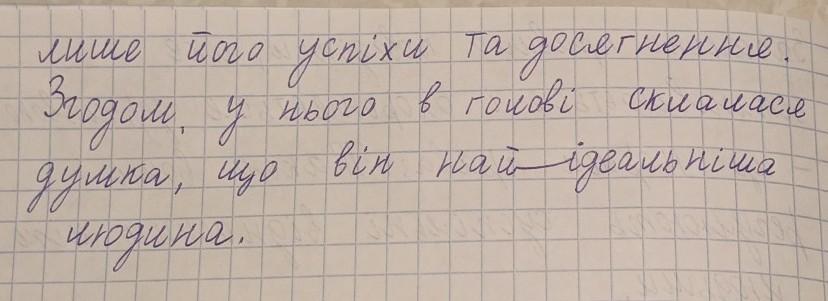 лише його успіхи та досягнення.
Згодом, у нього в голові склалася
думка, що він най-ідеальніша
людина.